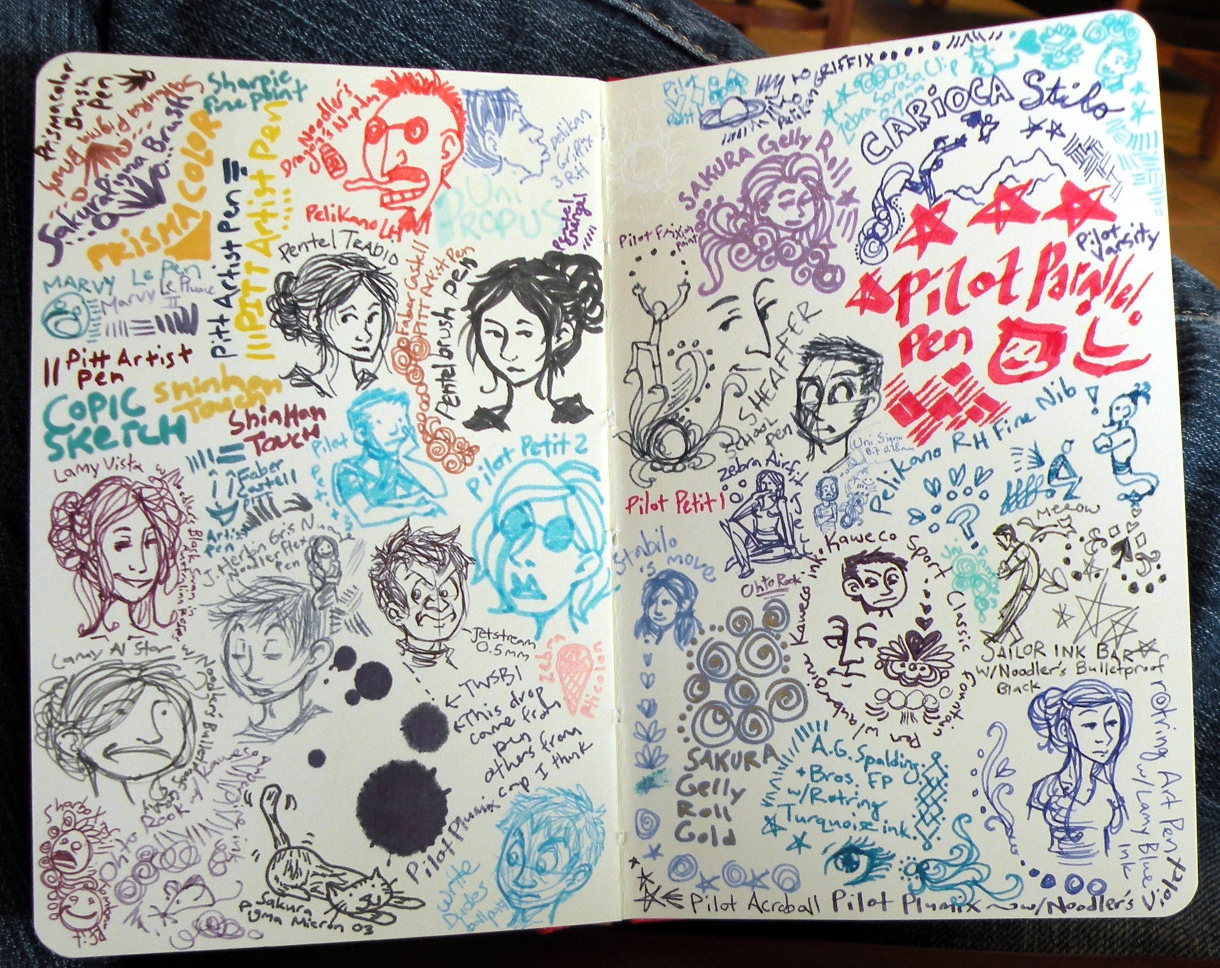 Prismacolor
Brush
Pen
Sharpie
fine point
Sakura Pigma Brush
PRISMACOLOR
Pitt Artist Pen
PITT Artist Pen
Noodler's
PELiKANO LH
Pelikan
Griffix
Uni
PROPUS
Pentel
Energel
MARVY Le Pen
Marvy Le Plume
II
Pitt Artist
Pen
COPIC
SKETCH
Shinhan
Touch
ShinHan
Touch
PENTEL TRADIO
Faber Castell PITT Artist Pen
Pentel brush pen
Faber
Castell
Artist
Pen
Pilot
Pilot Petit 2
Lamy Vista w/Noodlers
J. Herbin Gris Nuage
Noodler Flex
Pen
Lamy Al Star
Jetstream
0.5mm
Zebra
← TWSBI
← This drop
came from
pen
others from
Pilot Plumix cap I think
Ohto
Rook
Kaweco
Sakura
Pigma Micron 03
Write
Dudes
ball point
Pilot
Petit
GRIFFIX
Pelikan
Zebra Sarasa Clip
CARIOCA Stilo
SAKURA Gelly Roll
Pilot Frixion
point
Pilot
Varsity
Pilot Parallel
Pen
SHEAFFER
School
pen
Uni Signo
Bit
Pelikano RH Fine Nib
Pilot Petit 1
Zebra Airfit
Ohto Rook
Stabilo
is move
Kaweco Sport Classic Fountain
Pen w/
Kaweco ink
Meoow
SAILOR INK BAR
W/Noodler's Bulletproof
Black
SAKURA
Gelly
Roll
Gold
A.G. Spalding
+ Bros. FP
w/Rotring
Turquoise ink!
rotring Art Pen
w/Lamy Blue
Ink
Pilot Acroball
Pilot Plumix w/Noodler's Violet